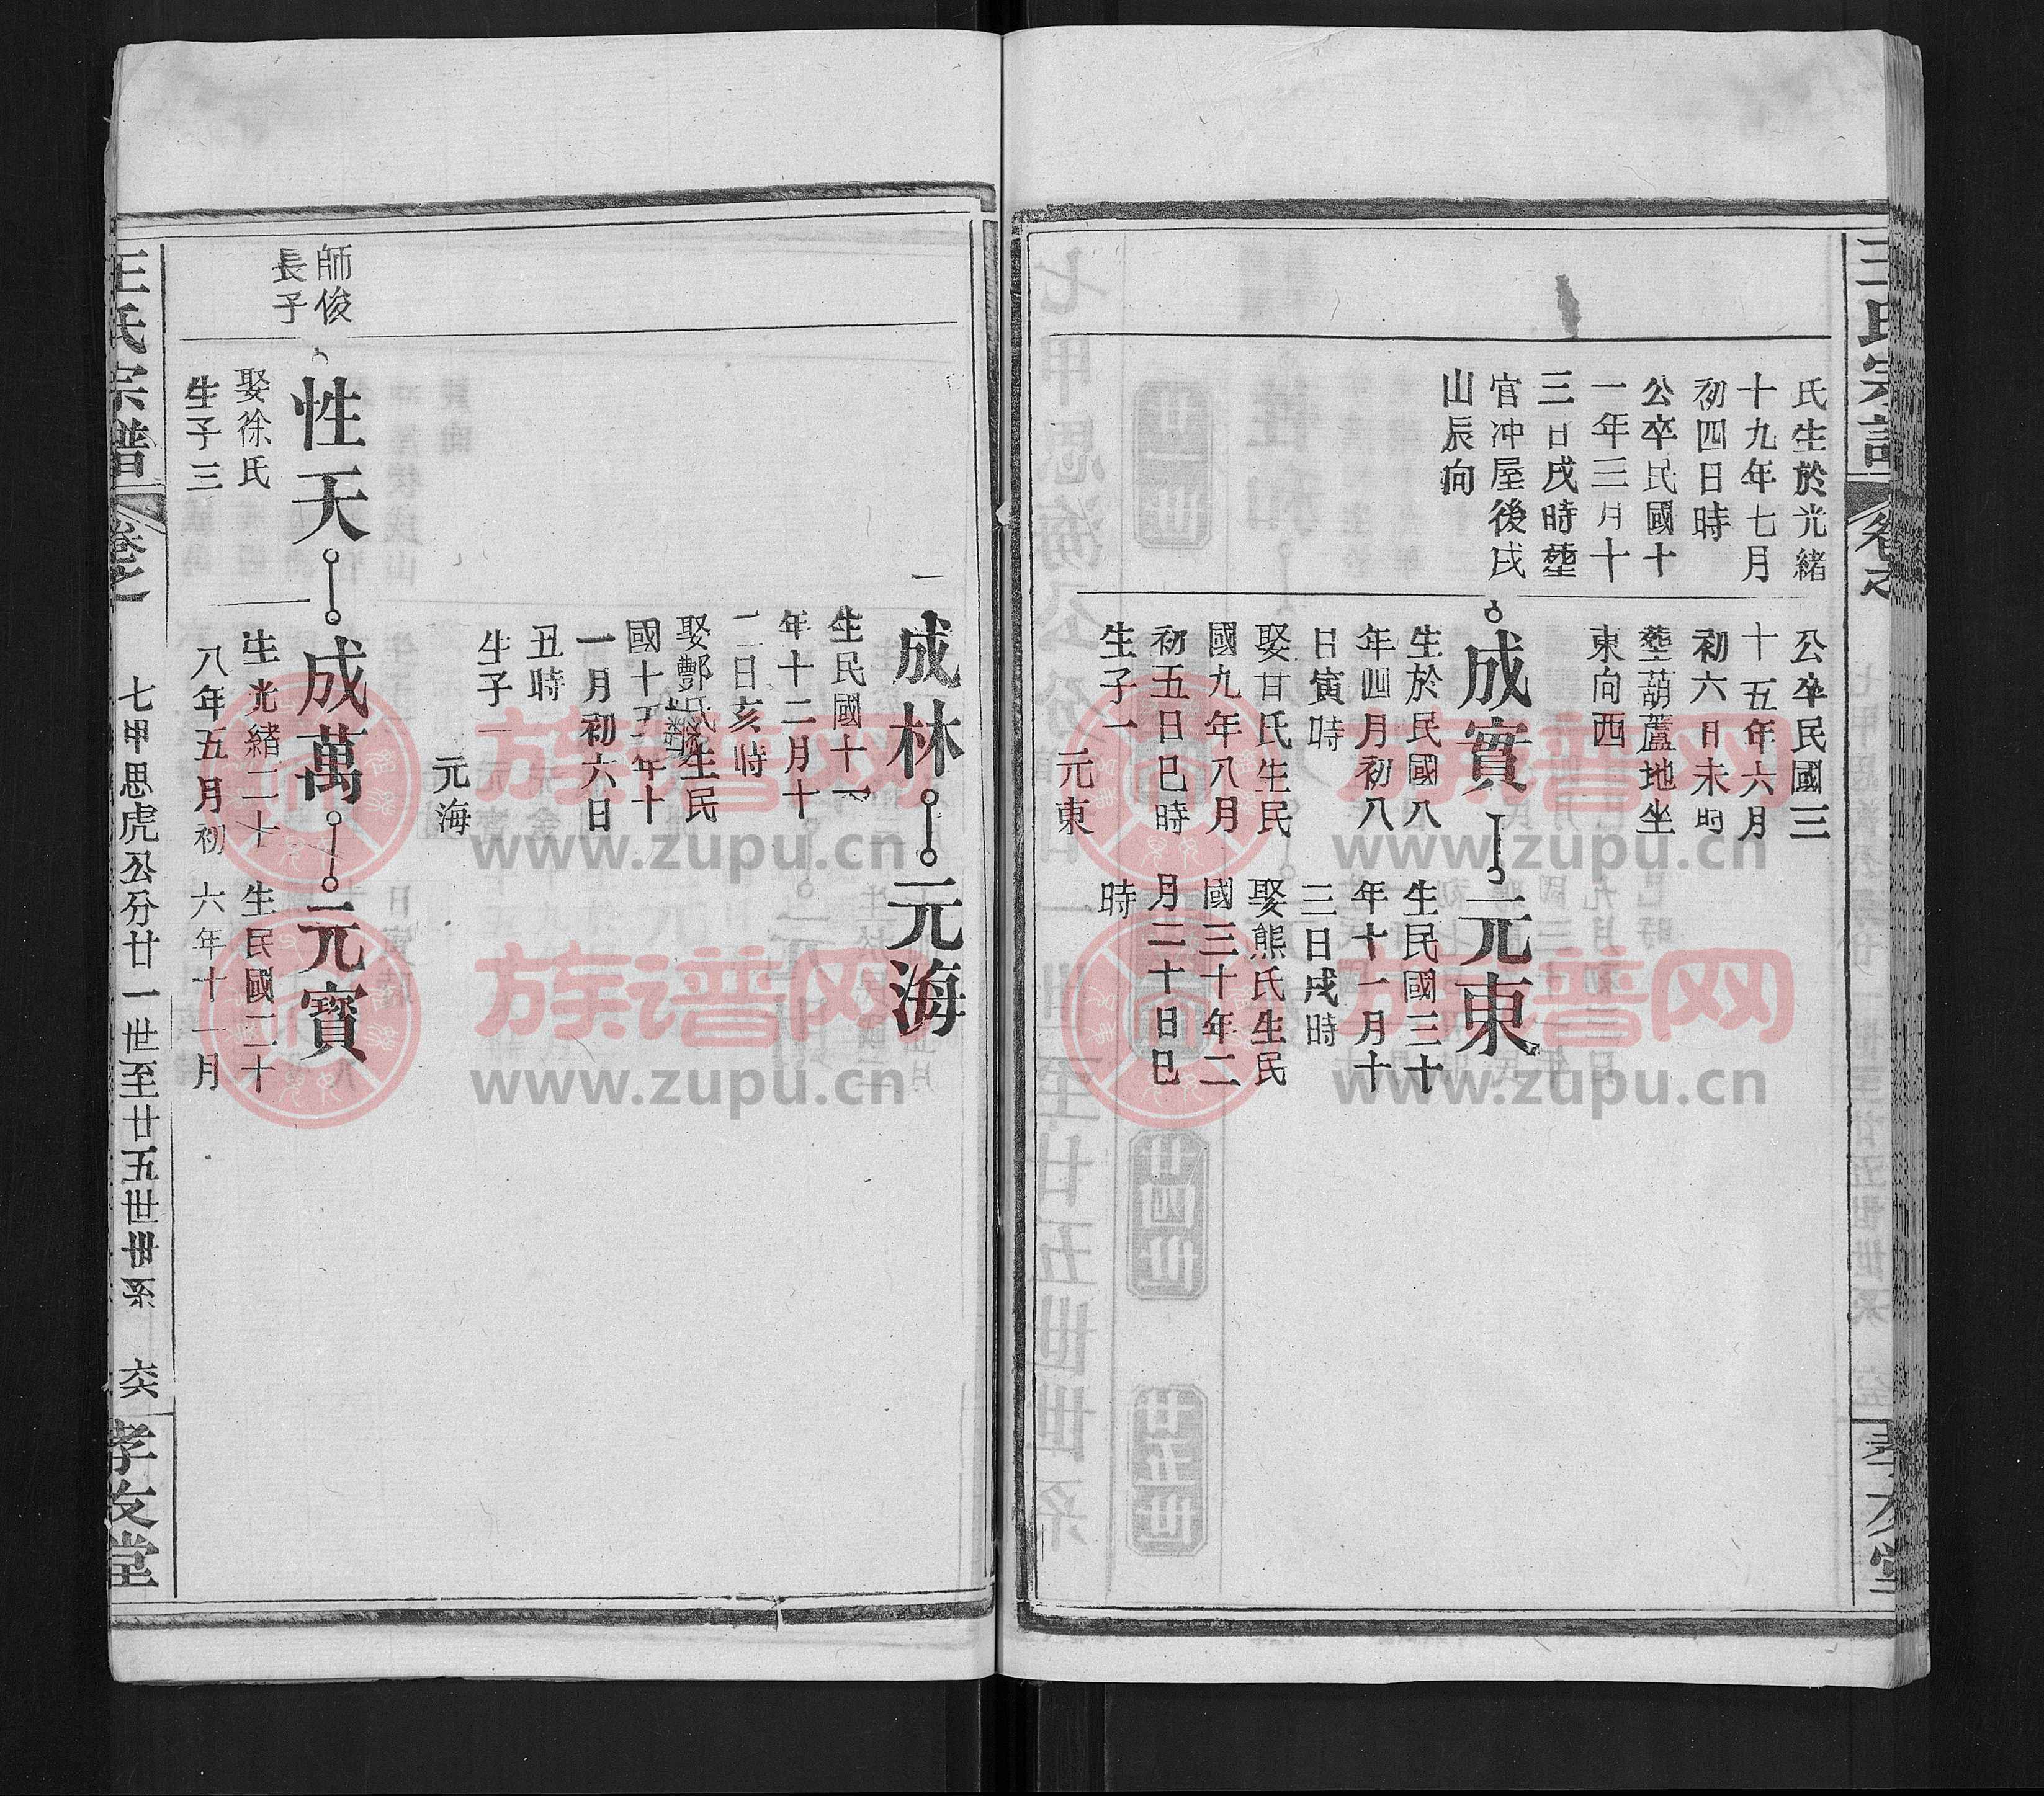 王氏宗譜
氏生於光緒
十九年七月
初四日時
公卒民國十
一年三月十
三日戌時塟
官冲屋後戌
山辰向
公卒民國三
十五年六月
初六日未時
塟葫蘆地坐
東向西
成實
元東
生於民國八
年四月初八
日寅時
娶甘氏生民
國九年八月
初五日巳時
生子一
元東
生民國三十
年十一月十
三日戌時
娶熊氏生民
國三十年二
月二十日巳
時
一
成林
元海
生民國十一
年十二月十
二日亥時
娶酆氏生民
一月初六日
丑時
生子一
元海
師俊
長子
性天
成萬
元寶
娶徐氏
生子三
生光緒二十
八年五月初
生民國二十
六年十一月
王氏宗譜
卷之一
七甲思虎公分廿一世至廿五世世系
六六
孝友堂
族谱网
www.zupu.cn
族谱网
www.zupu.cn
族谱网
www.zupu.cn
族谱网
www.zupu.cn